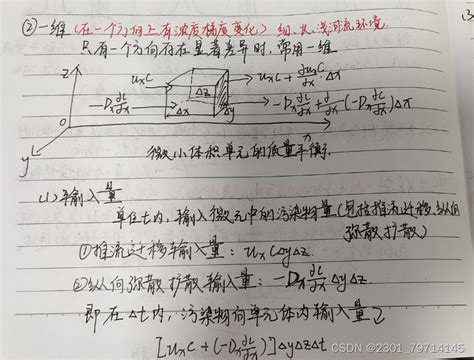 ②一维(在一个方向上有浓度梯度变化) 细、长、浅河流环境.
只有一个方向存在显著差异时,常用一维
z
uₓC
uₓC + ∂uₓC/∂x · Δx
Δz
-Dₓ ∂C/∂x
Δx
Δy
-Dₓ ∂C/∂x + ∂/∂x (-Dₓ ∂C/∂x) Δx
O
y
微小体积单元的质量平衡.
(1) 输入量
单位t内,输入微元中的污染物量(包括推流迁移、纵向
弥散扩散)
①推流迁移输入量: uₓCΔyΔz.
②纵向弥散扩散输入量: -Dₓ ∂C/∂x ΔyΔz.
即在Δt内,污染物向单元体内输入量
[uₓC + (-Dₓ ∂C/∂x)] ΔyΔzΔt
CSDN @2301_79714145